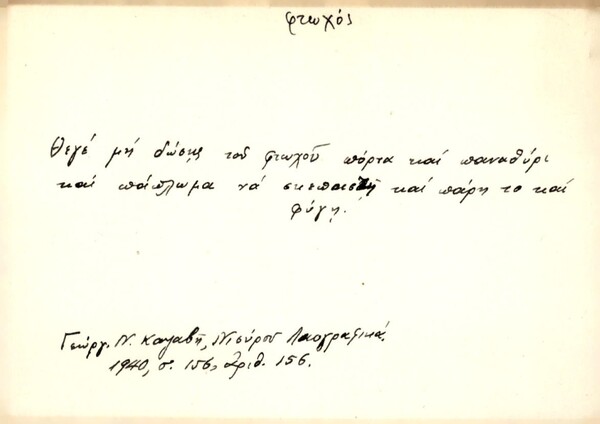 φτωχός
Θεγέ μή δώσῃς τοῦ φτωχοῦ πόρτα καί παναθύρι
καί πάπλωμα νά σκεπαστῇ καί πάρη το καί
φύγῃ.
Γεώργ. Ν. Καζαβῆ, Νισύρου Λαογραφικά.
1940, σ. 156, ἀριθ. 156.